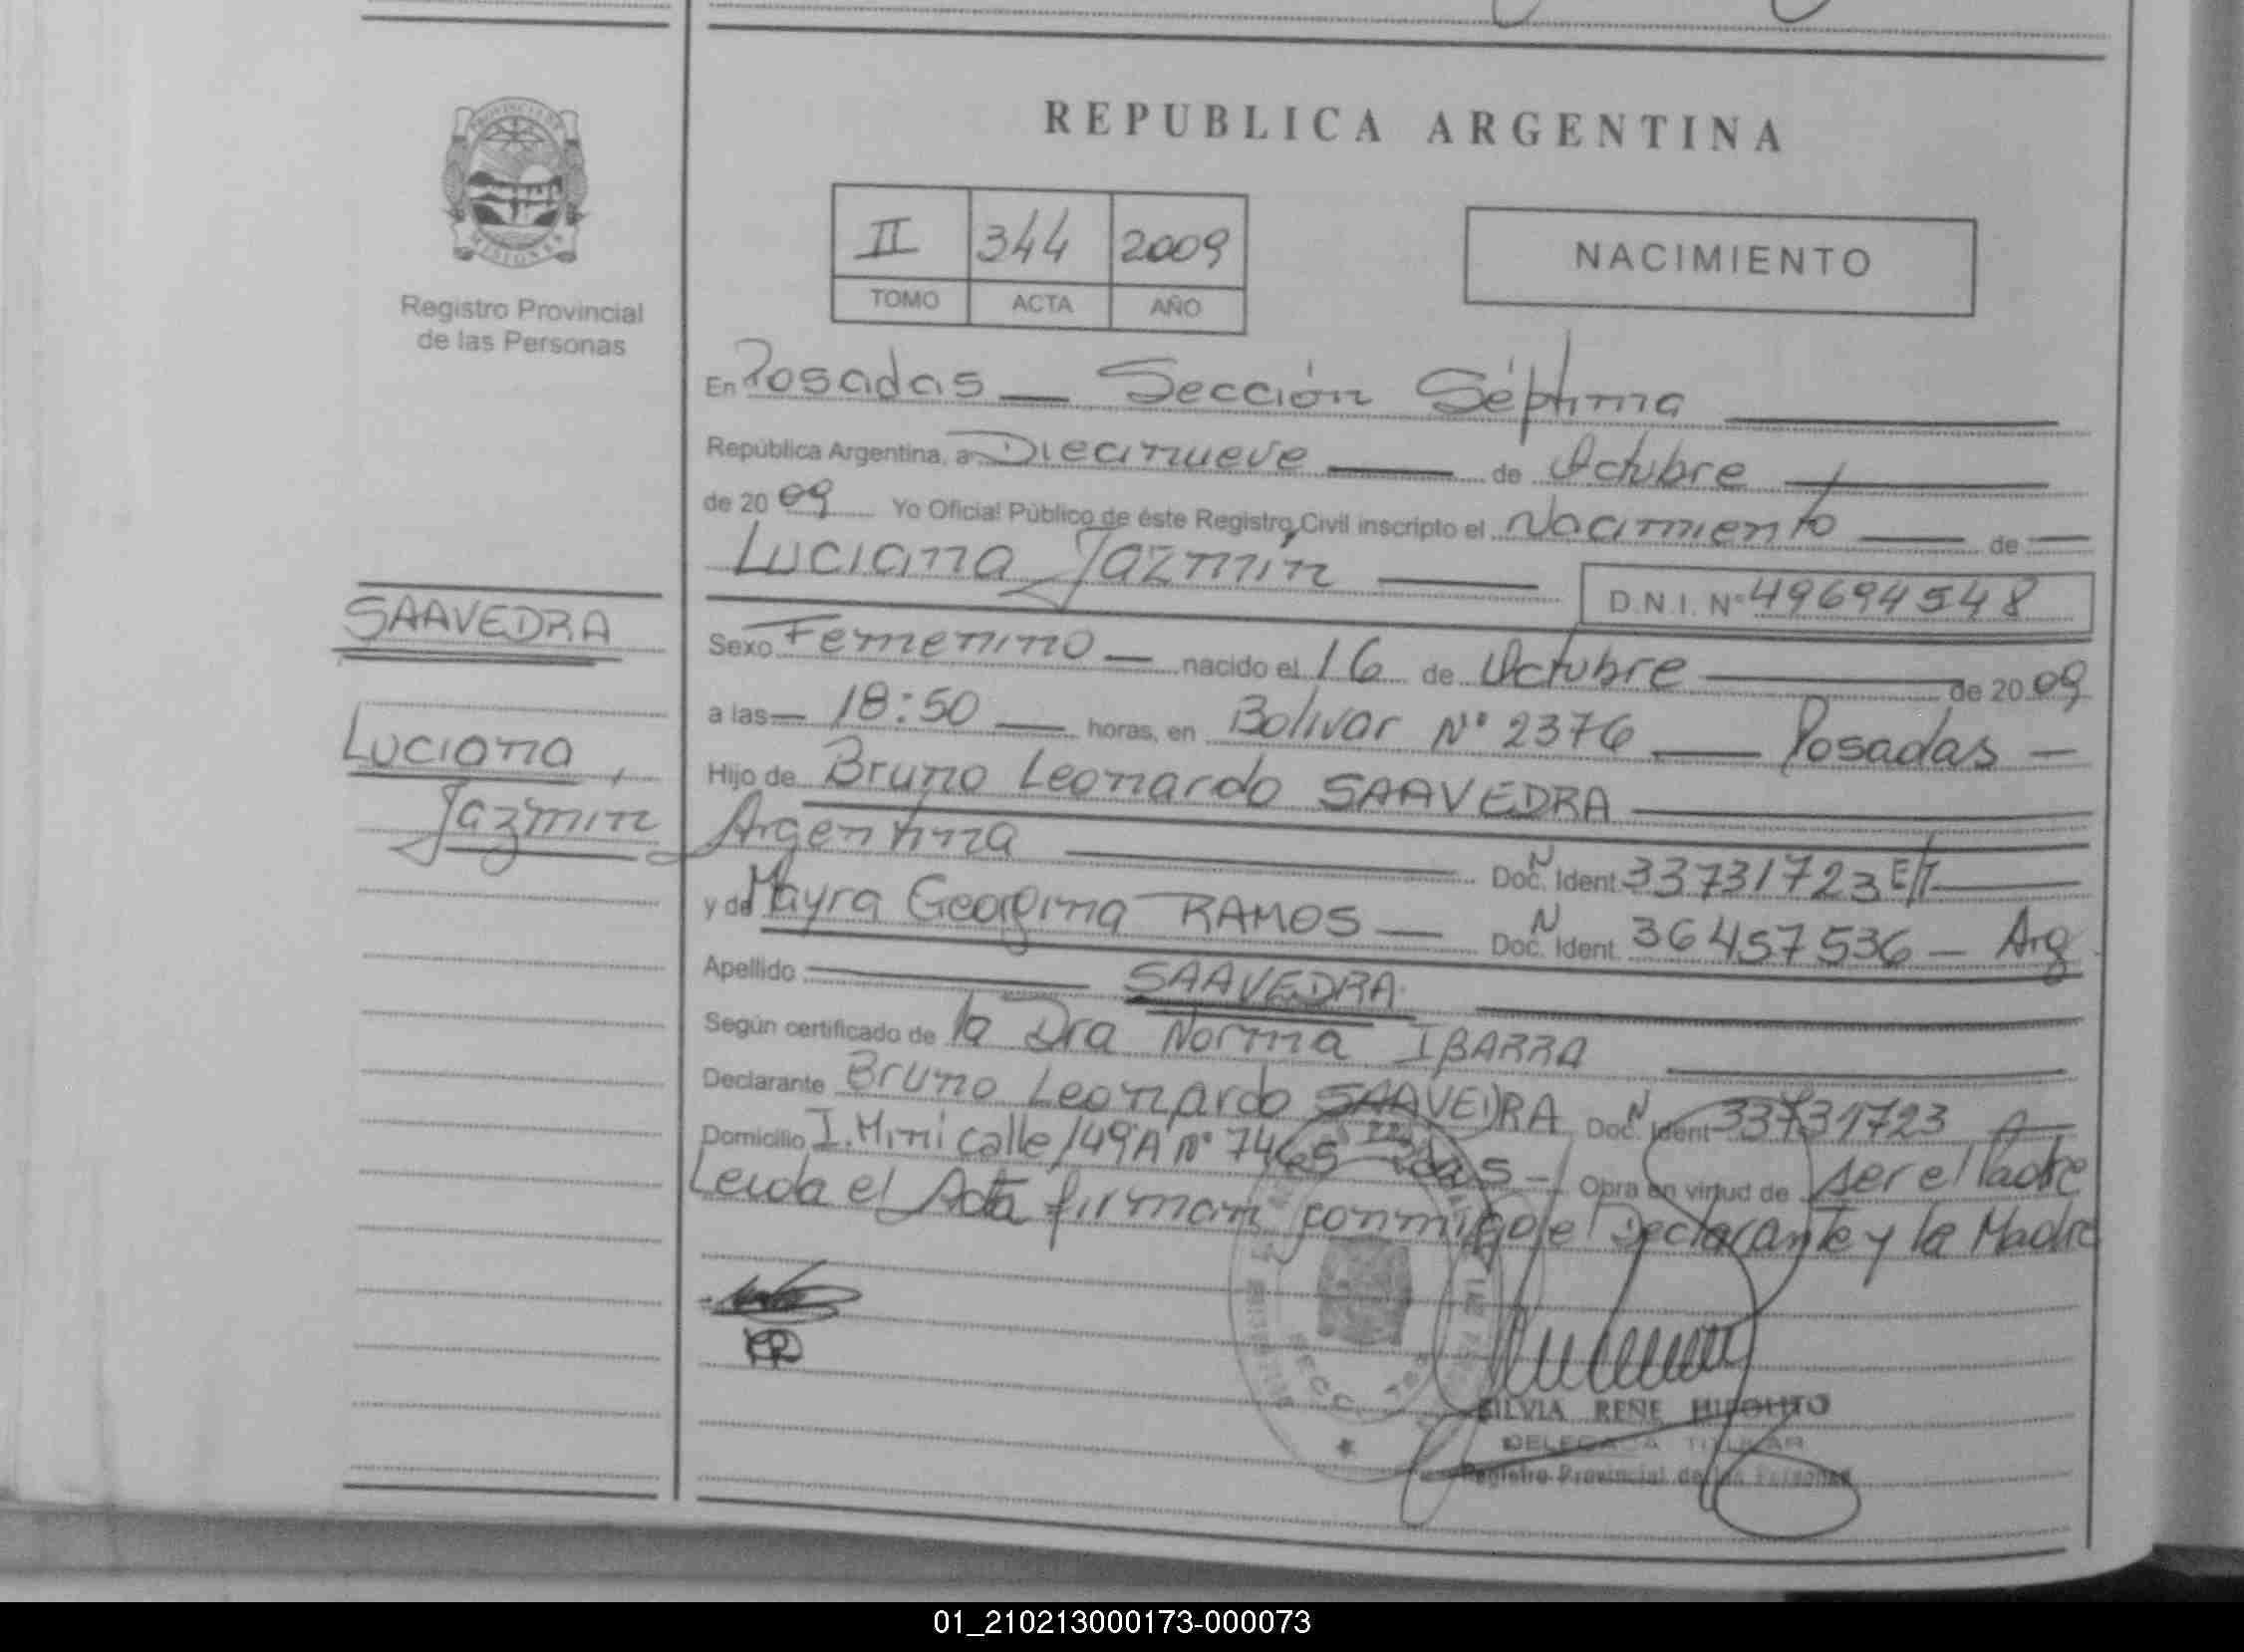 REPUBLICA ARGENTINA
PROVINCIA DE
MISIONES
Registro Provincial
de las Personas
II 344 2009
TOMO ACTA AÑO
NACIMIENTO
En Posadas — Sección Séptima
República Argentina, a Diecinueve — de Octubre
de 20 09 Yo Oficial Público de éste Registro Civil inscripto el Nacimiento — de —
Luciana Jazmín — D.N.I. Nº 49694548
SAAVEDRA
Luciana
Jazmín
Sexo Femenino — nacido el 16 de Octubre — de 20 09
a las — 18:50 — horas, en Bolivar Nº 2376 — Posadas —
Hijo de Bruno Leonardo SAAVEDRA
Argentina — Doc. N Ident. 33731723 E/T
y de Mayra Georgina RAMOS — Doc. N Ident. 36457536 — Arg
Apellido — SAAVEDRA
Según certificado de la Dra Norma IBARRA
Declarante Bruno Leonardo SAAVEDRA Doc. N Ident 33731723
Domicilio I. Miní calle 149A Nº 7465 Obra en virtud de ser el Padre
Leida el Acta firman conmigo el Declarante y la Madre
SILVIA RENE HIPOLITO
DELEGADA TITULAR
Registro Provincial de las Personas
01_210213000173-000073